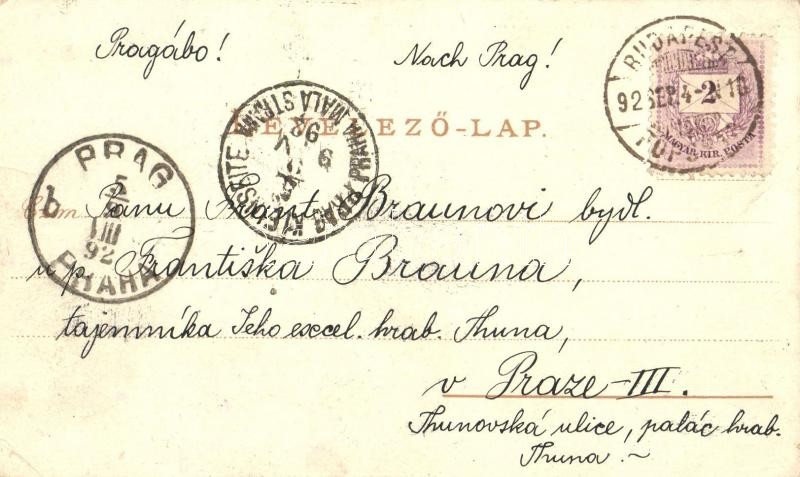 Pragábo!
Nach Prag!
BUDAPEST
92 SEP. 4
2
MAGYAR KIR. POSTA
PRAHA MALÁ STRANA
PRAG KLEINSEITE
LEVELEZŐ-LAP.
PRAG
5
VIII
92
b
PRAHA
Czím Panu Braunovi bydl.
u p. Františka Brauna
tajemníka Jeho excel. hrab. Thuna,
v Praze-III.
Thunovská ulice, palác hrab.
Thuna. ~